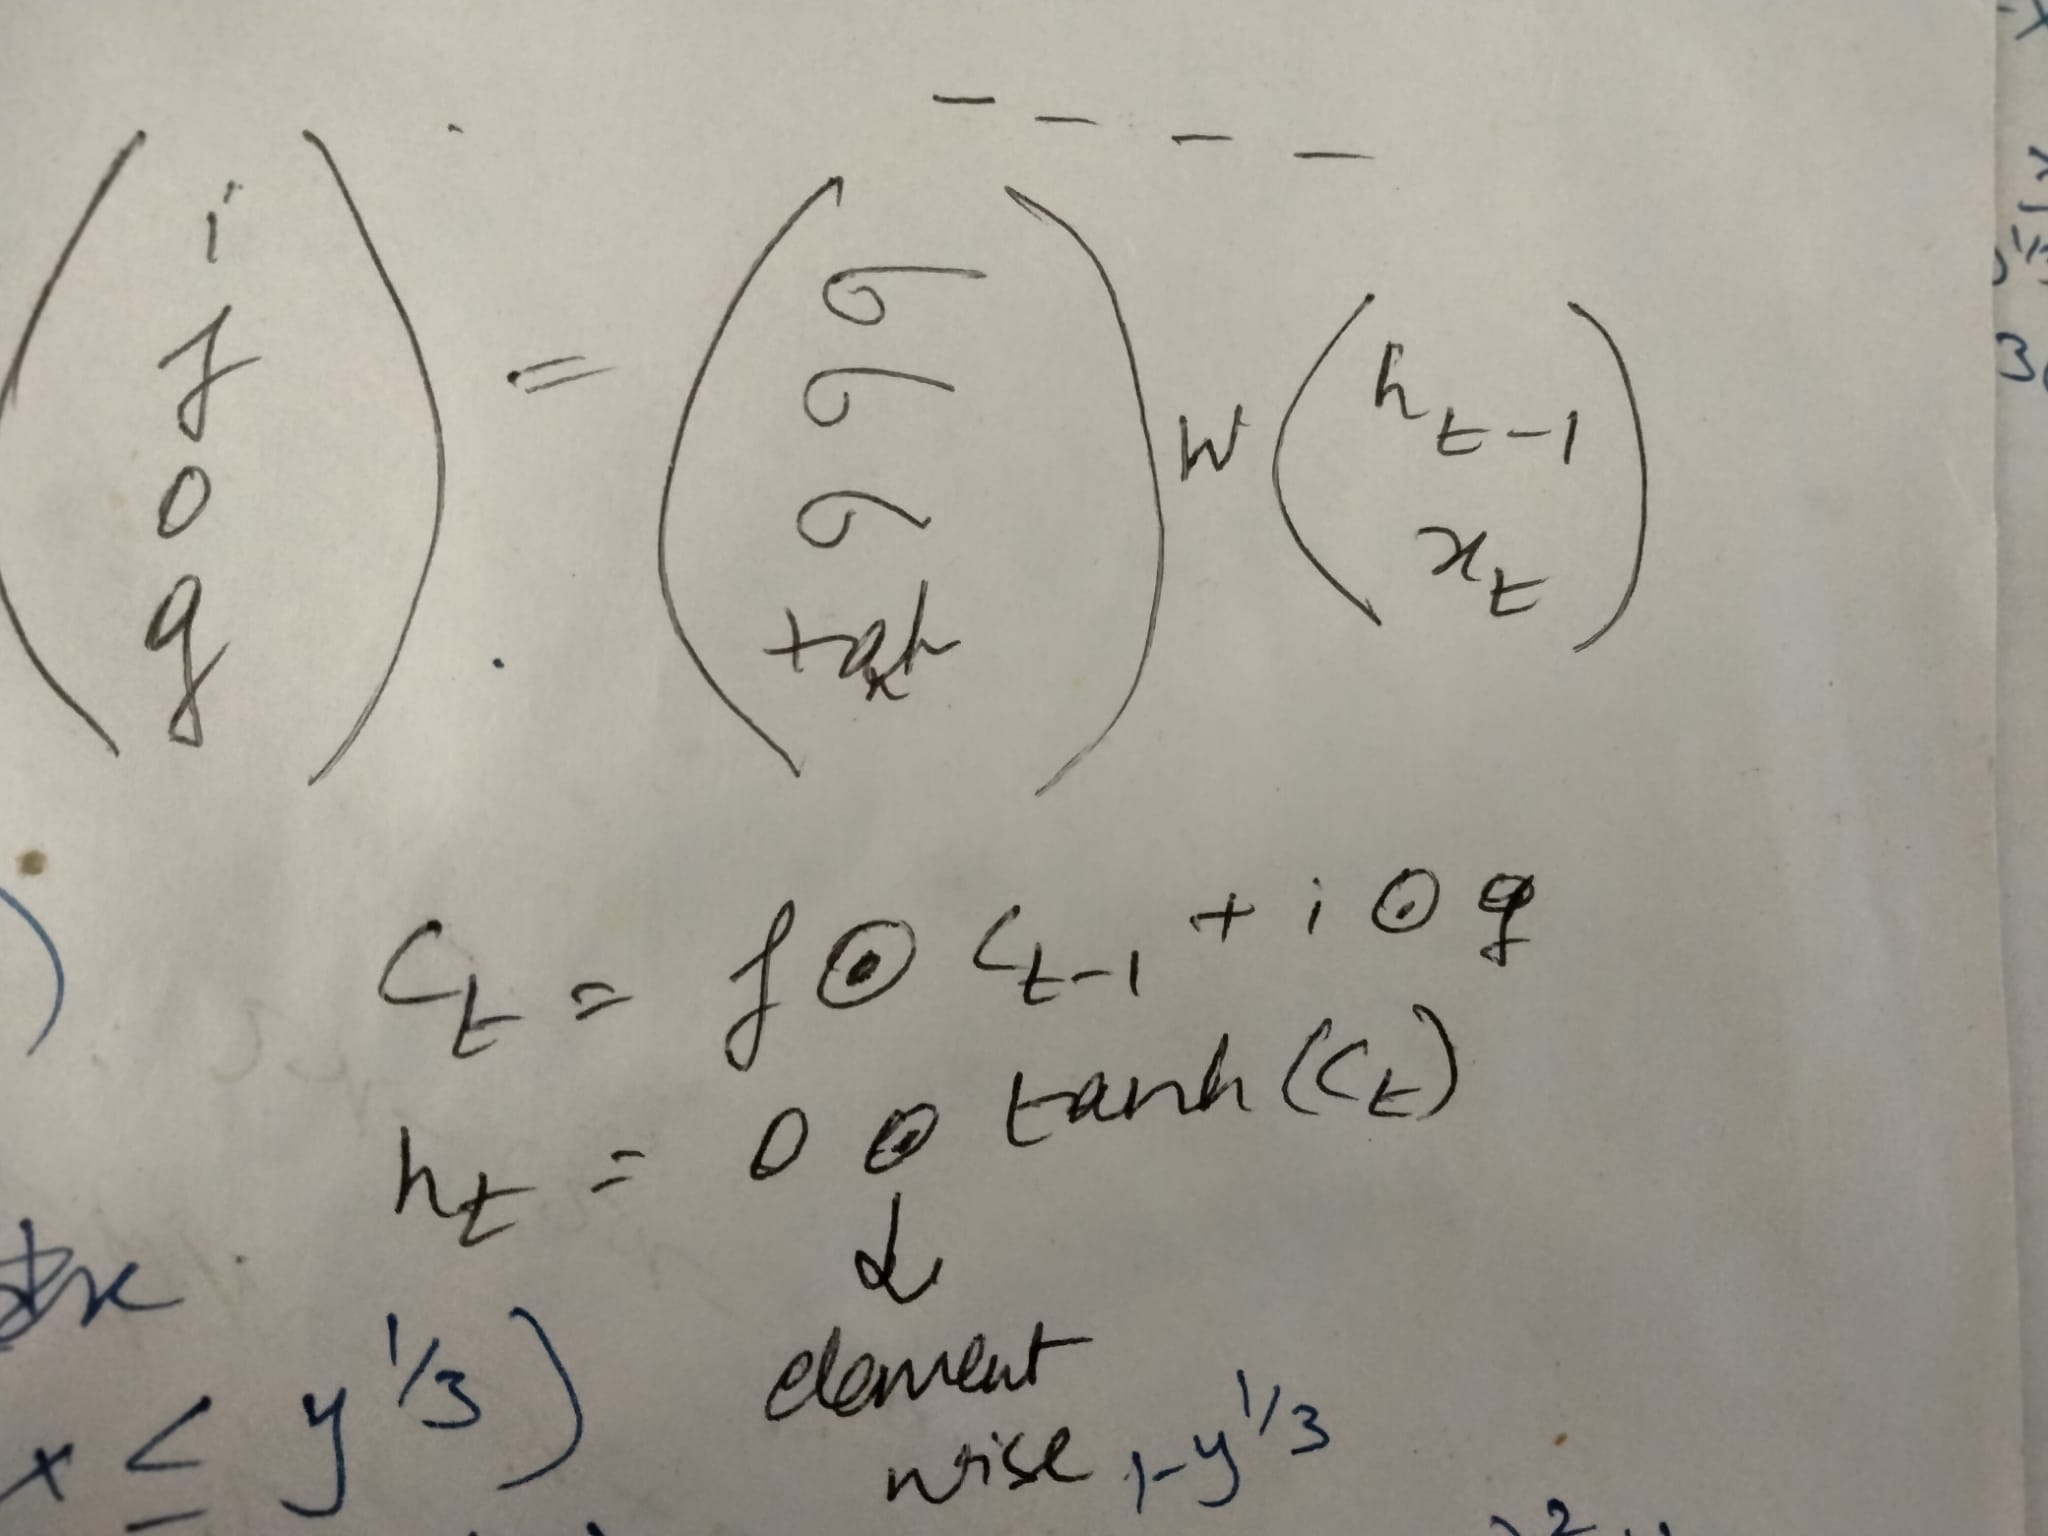 (i f o g) = (σ σ σ tanh) W (h_{t-1} x_t)
C_t = f ⊙ C_{t-1} + i ⊙ g
h_t = o ⊙ tanh(C_t)
↓
element
wise
x ≤ y^{1/3})
1-y^{1/3}